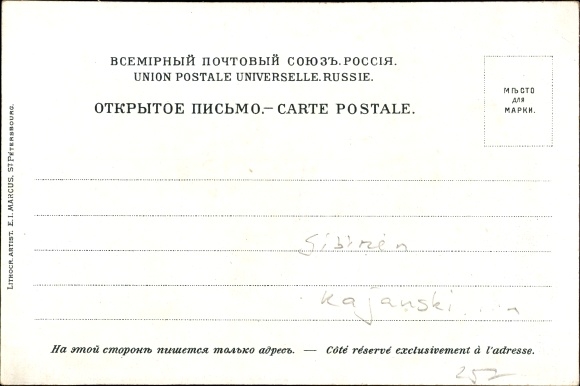 ВСЕМІРНЫЙ ПОЧТОВЫЙ СОЮЗЪ. РОССІЯ.
UNION POSTALE UNIVERSELLE. RUSSIE.
ОТКРЫТОЕ ПИСЬМО.— CARTE POSTALE.
МѢСТО
ДЛЯ
МАРКИ.
LITHOGR. ARTIST. E. I. MARCUS, ST PÉTERSBOURG.
Sibirien
Kajanski
На этой сторонѣ пишется только адресъ. — Côté réservé exclusivement à l'adresse.
257